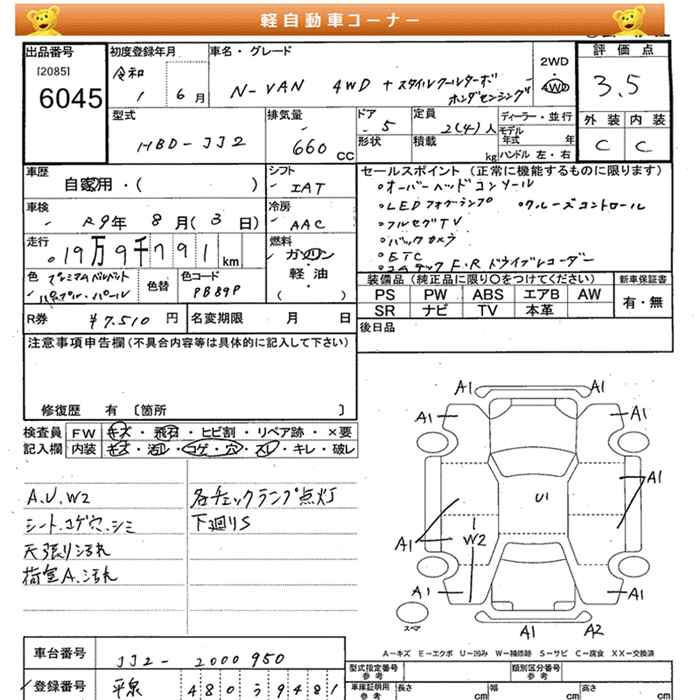 軽自動車コーナー
出品番号
[2085]
6045
初度登録年月
令和
1 6月
車名・グレード
N-VAN 4WD +スタイルクールターボ
ホンダセンシング
2WD
4WD
評価点
3.5
外装 内装
C C
型式
HBD-JJ2
排気量
660 CC
ドア
5
形状
定員
2(4)人
積載
kg
ディーラー・並行
モデル年式 年
ハンドル 左・右
車歴
自家用・( )
シフト
IAT
車検
R9年 8月(3日)
冷房
AAC
走行
19万9千791 km
燃料
ガソリン
軽油
( )
色
プレミアムベルベット
パープル・パール
色替
色コード
PB89P
R券
¥7,510円
名変期限 月 日
セールスポイント(正常に機能するものに限ります)
・オーバーヘッドコンソール
・LEDフォグランプ ・クルーズコントロール
・フルセグTV
・バックカメラ
・ETC
・コムテックF.Rドライブレコーダー
装備品(純正品に限り○をつけてください)
PS PW ABS エアB AW
SR ナビ TV 本革
新車保証書
有・無
後日品
注意事項申告欄(不具合内容等は具体的に記入して下さい)
修復歴 有 〔箇所 〕
検査員 FW キズ・飛石・ヒビ割・リペア跡・×要
記入欄 内装 キズ・汚レ・コゲ・穴・スレ・キレ・破レ
A.U.W2
シート.コゲ穴.シミ
天張り汚れ
荷室A.汚れ
各チェックランプ点灯
下廻りS
A1 A1
A1 A1
A1
U1
W2
A1
A1 A1
A1 A2
スペア
A-キズ E-エクボ U-凹み W-補修跡 S-サビ C-腐食 XX-交換済
車台番号
JJ2-2000950
登録番号
平泉 480う9481
型式指定番号
参考
類別区分番号
参考
車庫証明用
参考
長さ cm
幅 cm
高さ cm